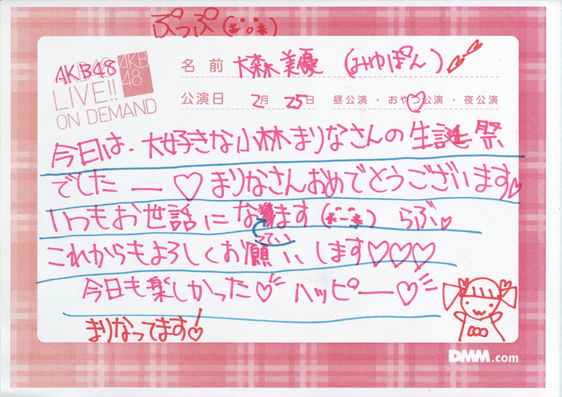 ぷっぷ(*¨*)
AKB48
AKB
48
LIVE!!
ON DEMAND
名前 大森美優 (みゆぽん)
公演日 2月 25日 昼公演・おやつ公演・夜公演
今日は、大好きな小林まりなさんの生誕祭
でしたー♡まりなさんおめでとうございます♡
いつもお世話になってます らぶ♡
これからもよろしくお願いします♡♡♡
今日も楽しかった♡ ハッピー♡
まりなってます!♡
DMM.com